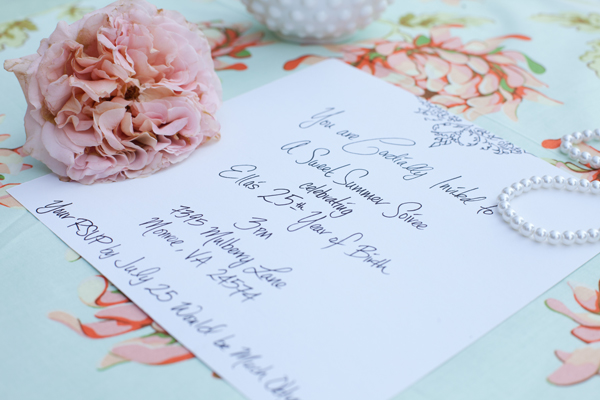 You are Cordially Invited to
A Sweet Summer Soiree
celebrating
Ella's 25th Year of Birth
3pm
7395 Mulberry Lane
Monroe, VA 24574
Your RSVP by July 25 Would be Much